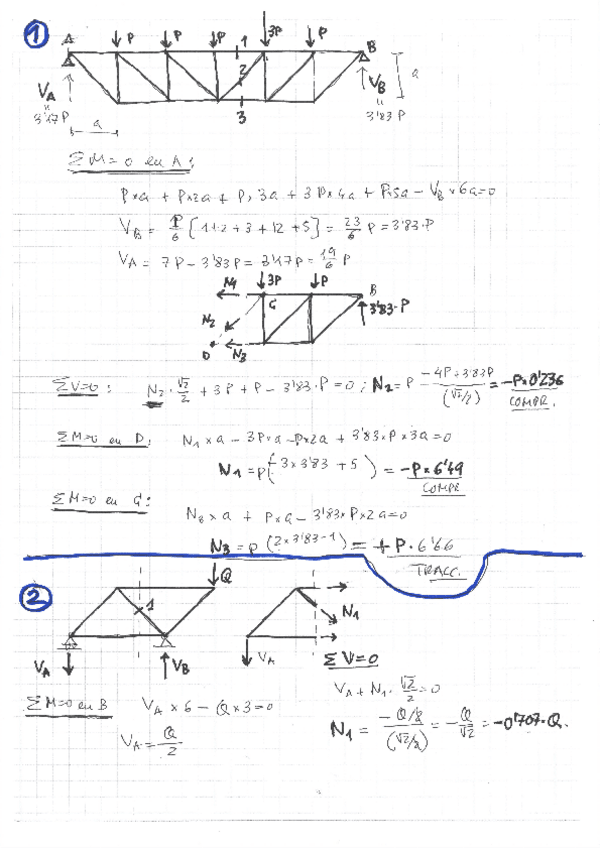 1
A P P P 1 3P P B
2
V_A a V_B
" 3 "
3'17P 3'83P
a
ΣM=0 en A:
P×a + P×2a + P×3a + 3P×4a + P×5a - V_B×6a=0
V_B = P/6 [1+2+3+12+5] = 23/6 P = 3'83·P
V_A = 7P - 3'83P = 3'17P = 19/6 P
N1 3P P B
C 3'83·P
N2
D N3
ΣV=0: N2·√2/2 + 3P + P - 3'83·P = 0; N2 = P (-4P+3'83P)/(√2/2) = -P×0'236
COMPR.
ΣM=0 en D: N1×a - 3P×a - P×2a + 3'83×P×3a=0
N1 = P(-3×3'83 + 5) = -P×6'49
COMPR
ΣM=0 en C: N3×a + P×a - 3'83×P×2a=0
N3 = P(2×3'83-1) = +P·6'66
TRACC.
2
Q
1 N1
V_A V_B V_A ΣV=0
ΣM=0 en B V_A×6 - Q×3=0
V_A = Q/2
V_A + N1·√2/2=0
N1 = (-Q/2)/(√2/2) = -Q/√2 = -0'707·Q.